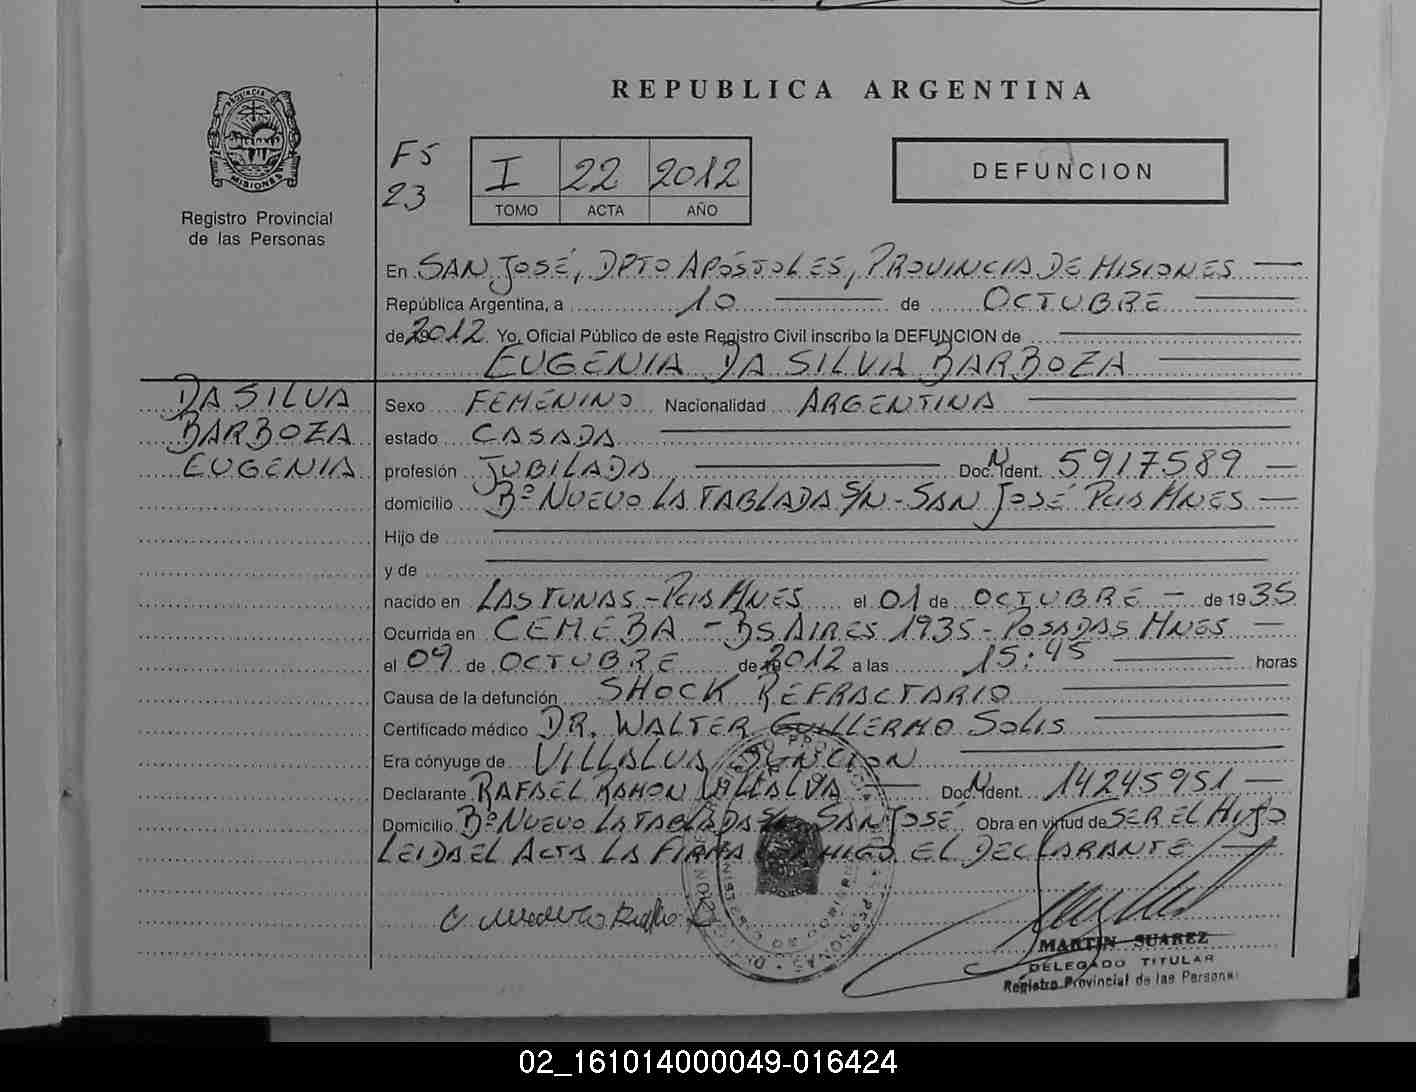 REPUBLICA ARGENTINA
PROVINCIA DE
MISIONES
Registro Provincial
de las Personas
F5
23
I 22 2012
TOMO ACTA AÑO
DEFUNCION
En SAN JOSÉ, DPTO APÓSTOLES, PROVINCIA DE MISIONES
República Argentina, a 10 de OCTUBRE
de 2012. Yo, Oficial Público de este Registro Civil inscribo la DEFUNCION de
EUGENIA DA SILVA BARBOZA
DA SILVA
BARBOZA
EUGENIA
Sexo FEMENINO Nacionalidad ARGENTINA
estado CASADA
profesión JUBILADA Doc. Ident. 5917589
domicilio Bº NUEVO LA TABLADA S/N - SAN JOSÉ PCIA MNES
Hijo de
y de
nacido en LAS TUNAS - PCIA MNES el 01 de OCTUBRE de 1935
Ocurrida en CEMEBA - BS AIRES 1935 - POSADAS MNES
el 09 de OCTUBRE de 2012 a las 15:45 horas
Causa de la defunción SHOCK REFRACTARIO
Certificado médico DR. WALTER GUILLERMO SOLIS
Era cónyuge de VILLALVA ASUNCION
Declarante RAFAEL RAMON VILLALVA Doc. Ident. 14245951
Domicilio Bº NUEVO LA TABLADA S/N SAN JOSÉ Obra en virtud de SER EL HIJO
LEIDA EL ACTA LA FIRMA CONMIGO EL DECLARANTE
MARTIN SUAREZ
DELEGADO TITULAR
Registro Provincial de las Personas
02_161014000049-016424